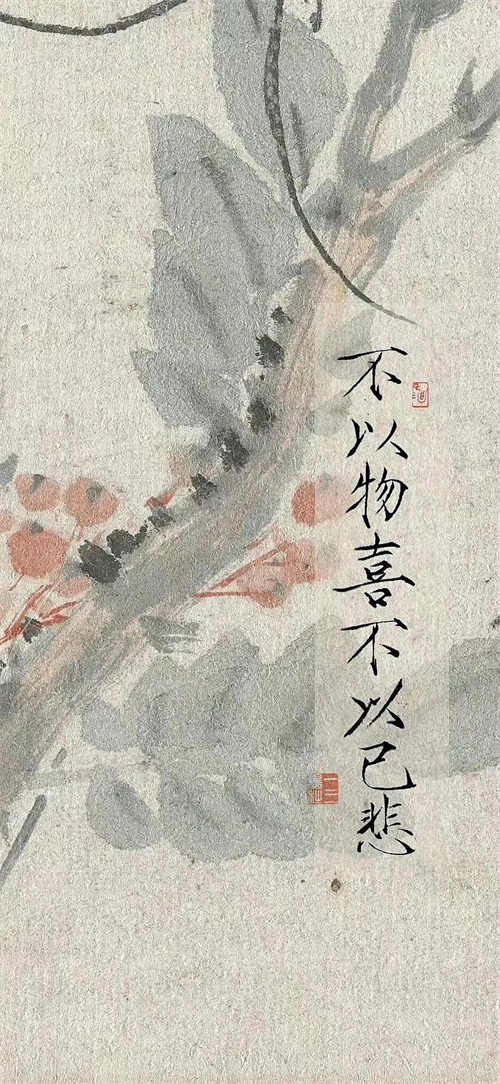 不以物喜不以己悲